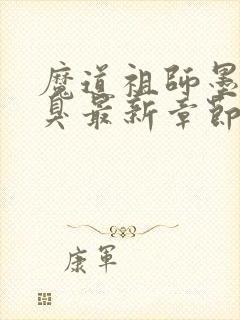 魔道祖師墨
臭最新章節
康軍